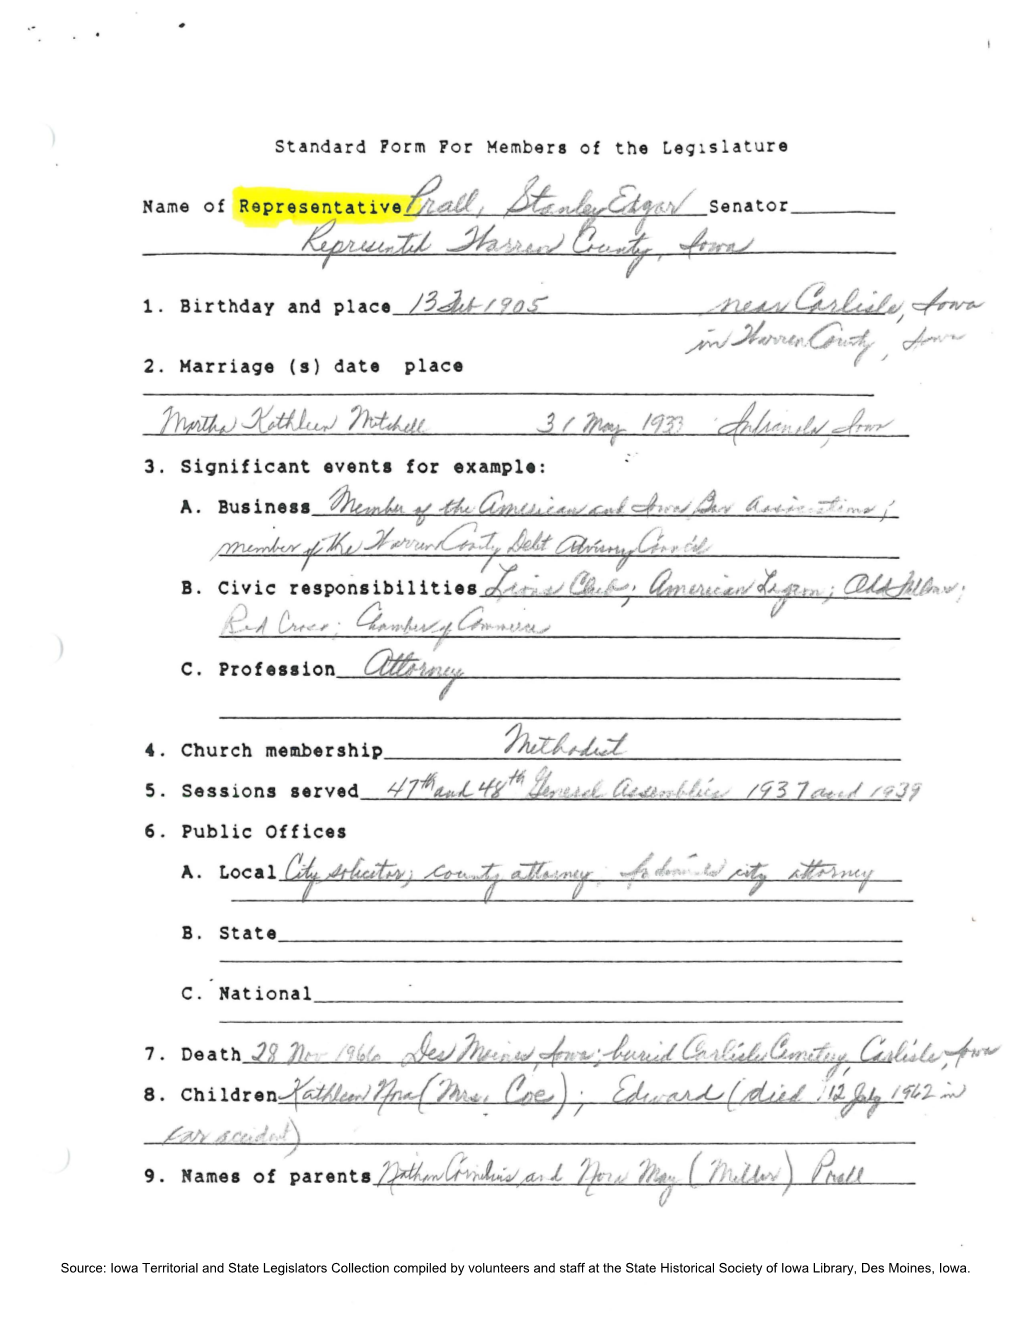 Standard Form For Members of the Legislature
Name of Representative Prall, Stanley Edgar Senator
Represented Warren County, Iowa
1. Birthday and place 13 Feb 1905 near Carlisle, Iowa
in Warren County, Iowa
2. Marriage (s) date place
Martha Kathleen Mitchell 31 May 1933 Indianola, Iowa
3. Significant events for example:
A. Business Member of the American and Iowa Bar Associations;
member of the Warren County Debt Advisory Council
B. Civic responsibilities Lions Club; American Legion; Odd Fellows;
Red Cross; Chamber of Commerce
C. Profession Attorney
4. Church membership Methodist
5. Sessions served 47th and 48th General Assemblies 1937 and 1939
6. Public Offices
A. Local City solicitor; county attorney; city attorney
B. State
C. National
7. Death 28 Nov 1966 Des Moines, Iowa; buried Carlisle Cemetery, Carlisle, Iowa
8. Children Kathleen Nora (Mrs. Coe); Edward (died 12 July 1962 in
car accident)
9. Names of parents Nathan Cornelius and Nora May (Miller) Prall
Source: Iowa Territorial and State Legislators Collection compiled by volunteers and staff at the State Historical Society of Iowa Library, Des Moines, Iowa.